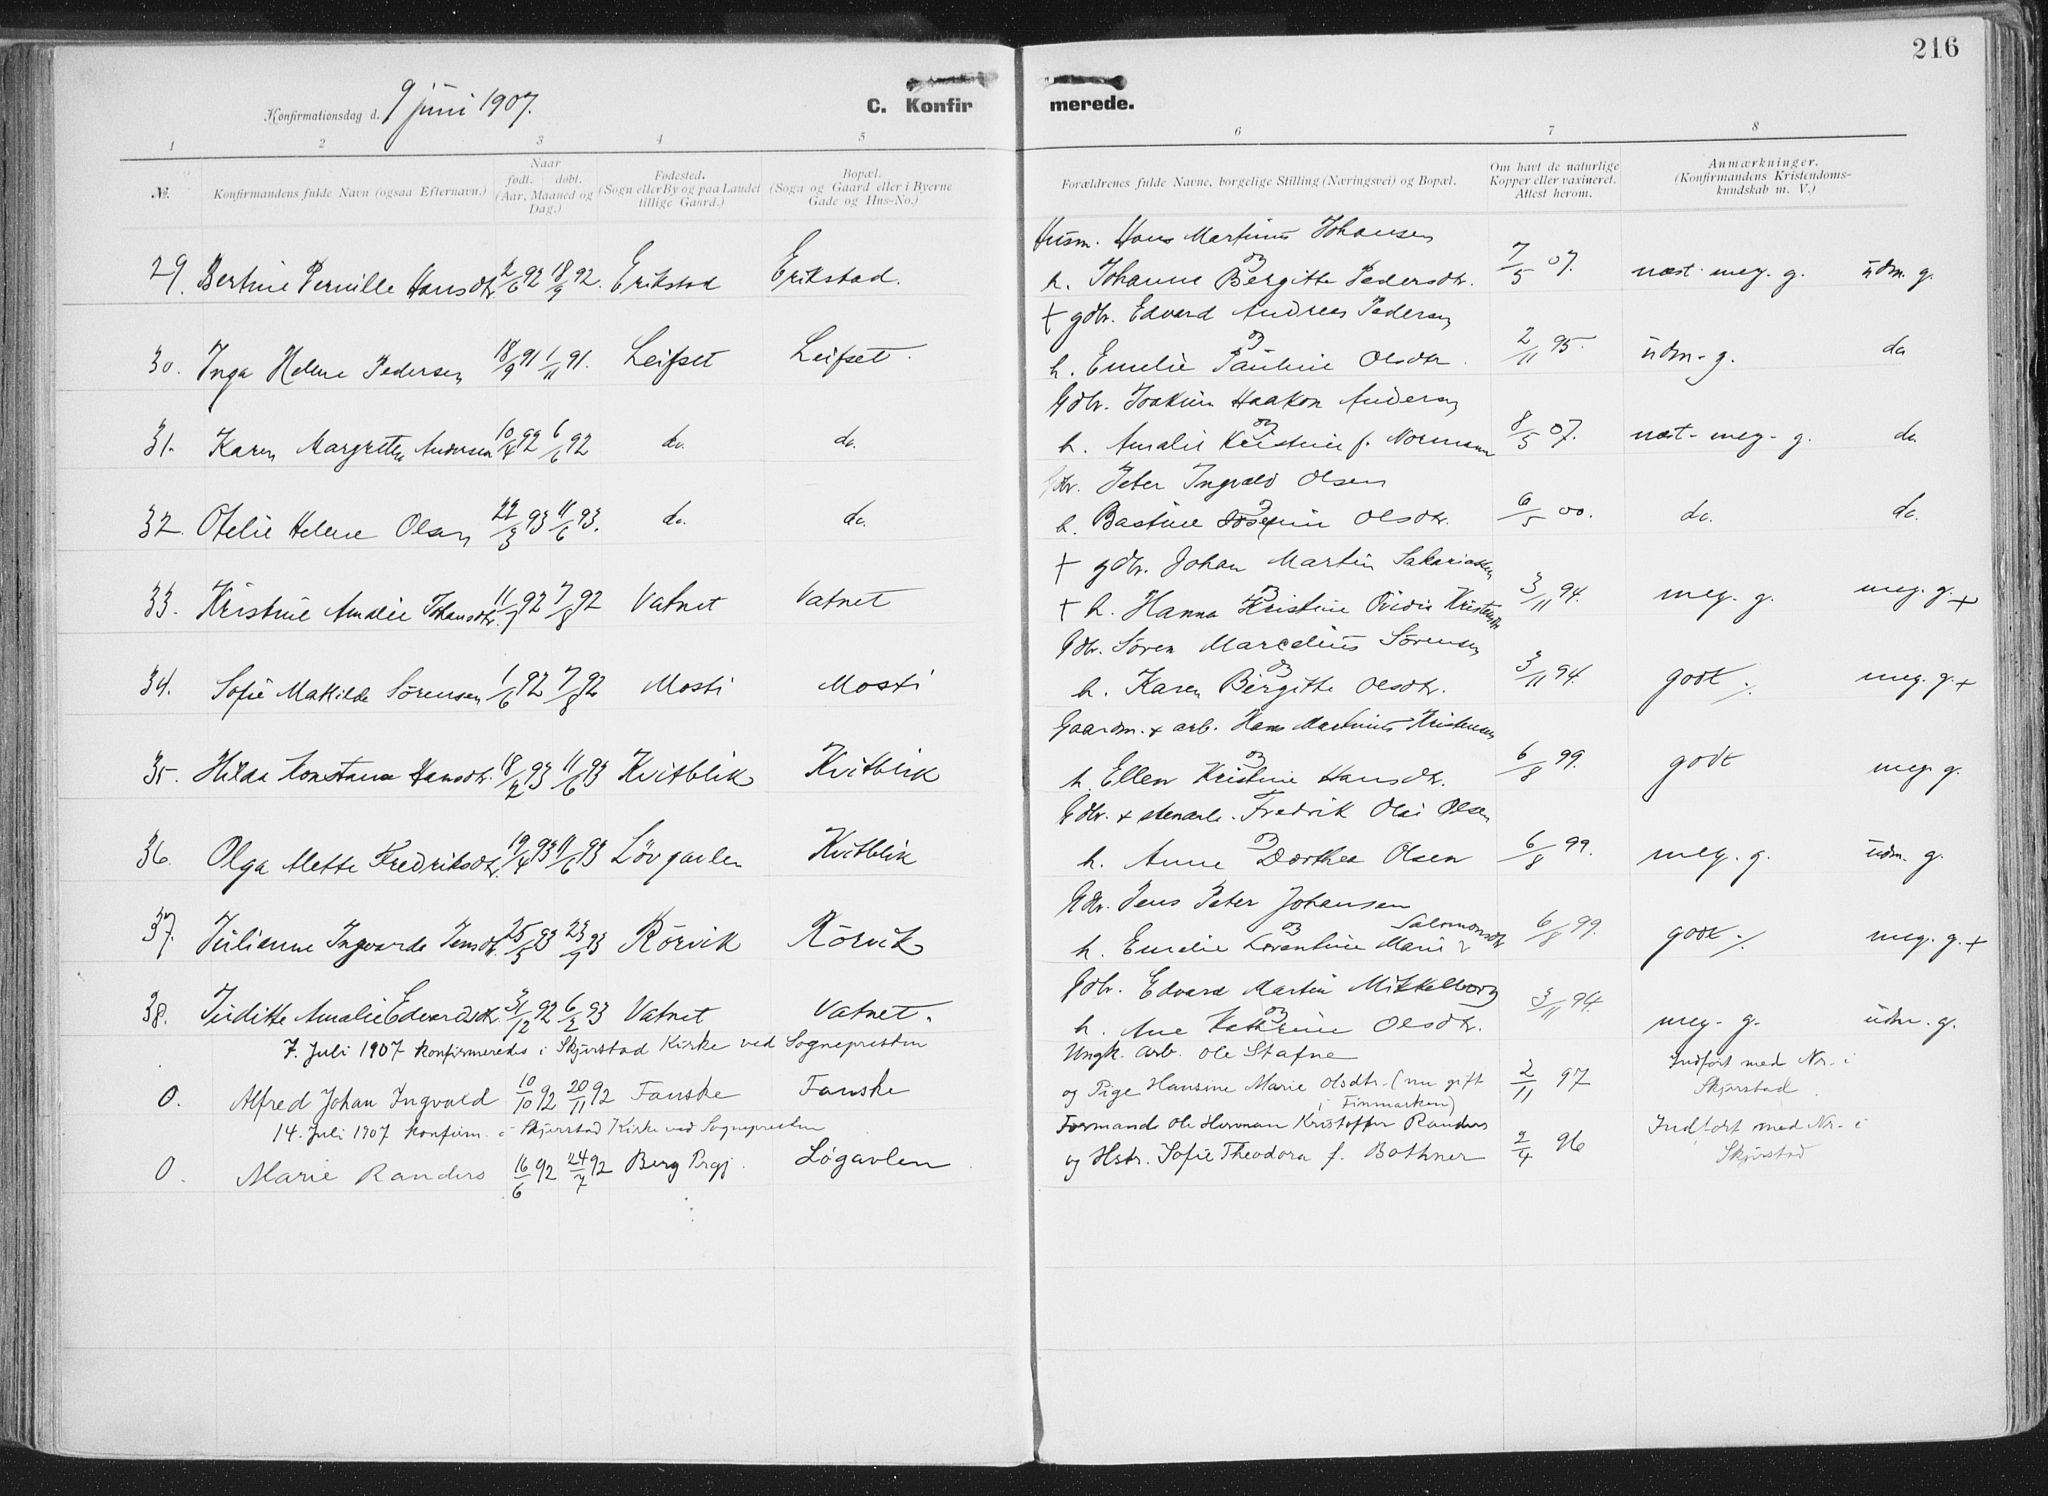 216
Konfirmationsdag d. 9 juni 1907.
C. Konfirmerede.
1 2 3 4 5 6 7 8
№.
Konfirmandens fulde Navn (ogsaa Efternavn.)
Naar født. døbt. (Aar, Maaned og Dag.)
Fødested. (Sogn eller By og paa Landet tillige Gaard.)
Bopæl. (Sogn og Gaard eller i Byerne Gade og Hus-No.)
Forældrenes fulde Navne, borgelige Stilling (Næringsvei) og Bopæl.
Om havt de naturlige Kopper eller vaxineret. Attest herom.
Anmærkninger. (Konfirmandens Kristendomskundskab m. V.)
Husm. Hans Martinus Johansen
29. Bertine Pernille Hansdtr. 2/6 92 18/9 92. Erikstad Erikstad. og h. Johanne Bergitte Pedersdtr. 7/5 07. næst. meg. g. udm. g.
+ gdbr. Edvard Andreas Pedersen
30. Inga Helene Pedersen 18/9 91 1/11 91. Leifset Leifset. og h. Emelie Pauline Olsdtr. 2/11 95. udm. g. do
Gdbr. Joakim Haakon Andersen
31. Karen Margrethe Andersen 10/4 92 6/6 92 do. do. og h. Amalie Kristine f. Normann 8/5 07. næst. meg. g. do
Gdbr. Peter Ingvald Olsen
32. Otelie Helene Olsen 22/3 93 11/6 93. do. do. og h. Bastine Josefine Olsdtr. 6/5 00. do. do.
+ gdbr. Johan Martin Sakariassen
33. Kristine Amalie Johansdtr. 11/7 92 7/8 92 Vatnet Vatnet og + h. Hanna Kristine Ovidie Kristensdtr 3/11 94. meg. g. meg. g. +
Gdbr. Søren Marcelius Sørensen
34. Sofie Matilde Sørensen 1/6 92 7/8 92 Mosti Mosti og h. Karen Birgitte Olsdtr. 3/11 94. godt ./. meg. g. +
Gaardm. + arb. Hans Martinus Kristensen
35. Hilda Konstanse Hansdtr. 18/2 93 11/6 93 Kvitblik Kvitblik og h. Ellen Kristine Hansdtr. 6/8 99. godt meg. g.
Gdbr. + stenarb. Fredrik Olai Olsen
36. Olga Mette Fredriksdtr. 19/4 93 11/6 93 Løvgavlen Kvitblik og h. Anne Dorthea Olsen 6/8 99. meg. g. udm. g.
Gdbr. Jens Peter Johansen
37. Julianne Ingvarda Jensdtr. 25/5 93 23/9 93 Rørvik Rørvik og h. Emelie Lorentine Marie Salomonsdtr 6/8 99. godt ./. meg. g. +
Gdbr. Edvard Martin Mikkelborg
38. Juditte Amalie Edvardsdtr. 31/12 92 6/2 93 Vatnet Vatnet. og h. Ane Katrine Olsdtr. 3/11 94. meg. g. udm. g.
7. Juli 1907 konfirmeredes i Skjerstad Kirke ved Sognepresten
Ungk. arb. Ole Stafne
0. Alfred Johan Ingvald 10/10 92 20/11 92 Fauske Fauske og Pige Hansine Marie Olsdtr. (nu gift i Finmarken) 2/11 97 Indført med Nr. i Skjerstad
14. Juli 1907 konfirm. i Skjerstad Kirke ved Sognepresten
Formand Ole Herman Kristoffer Randers
0. Marie Randers 16/6 92 24/7 92 Berg Prgj. Løgavlen og Hstr. Sofie Theodora f. Bothner 2/4 96 Indført med Nr. i Skjerstad